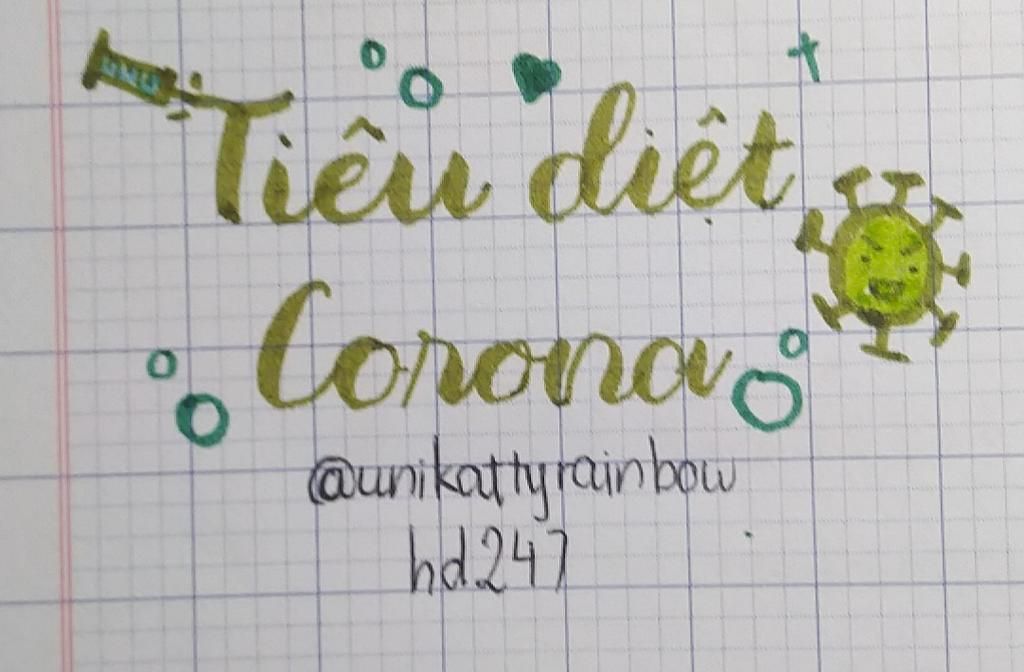 Tiêu diệt
Corona
@unikattyrainbow
hd247